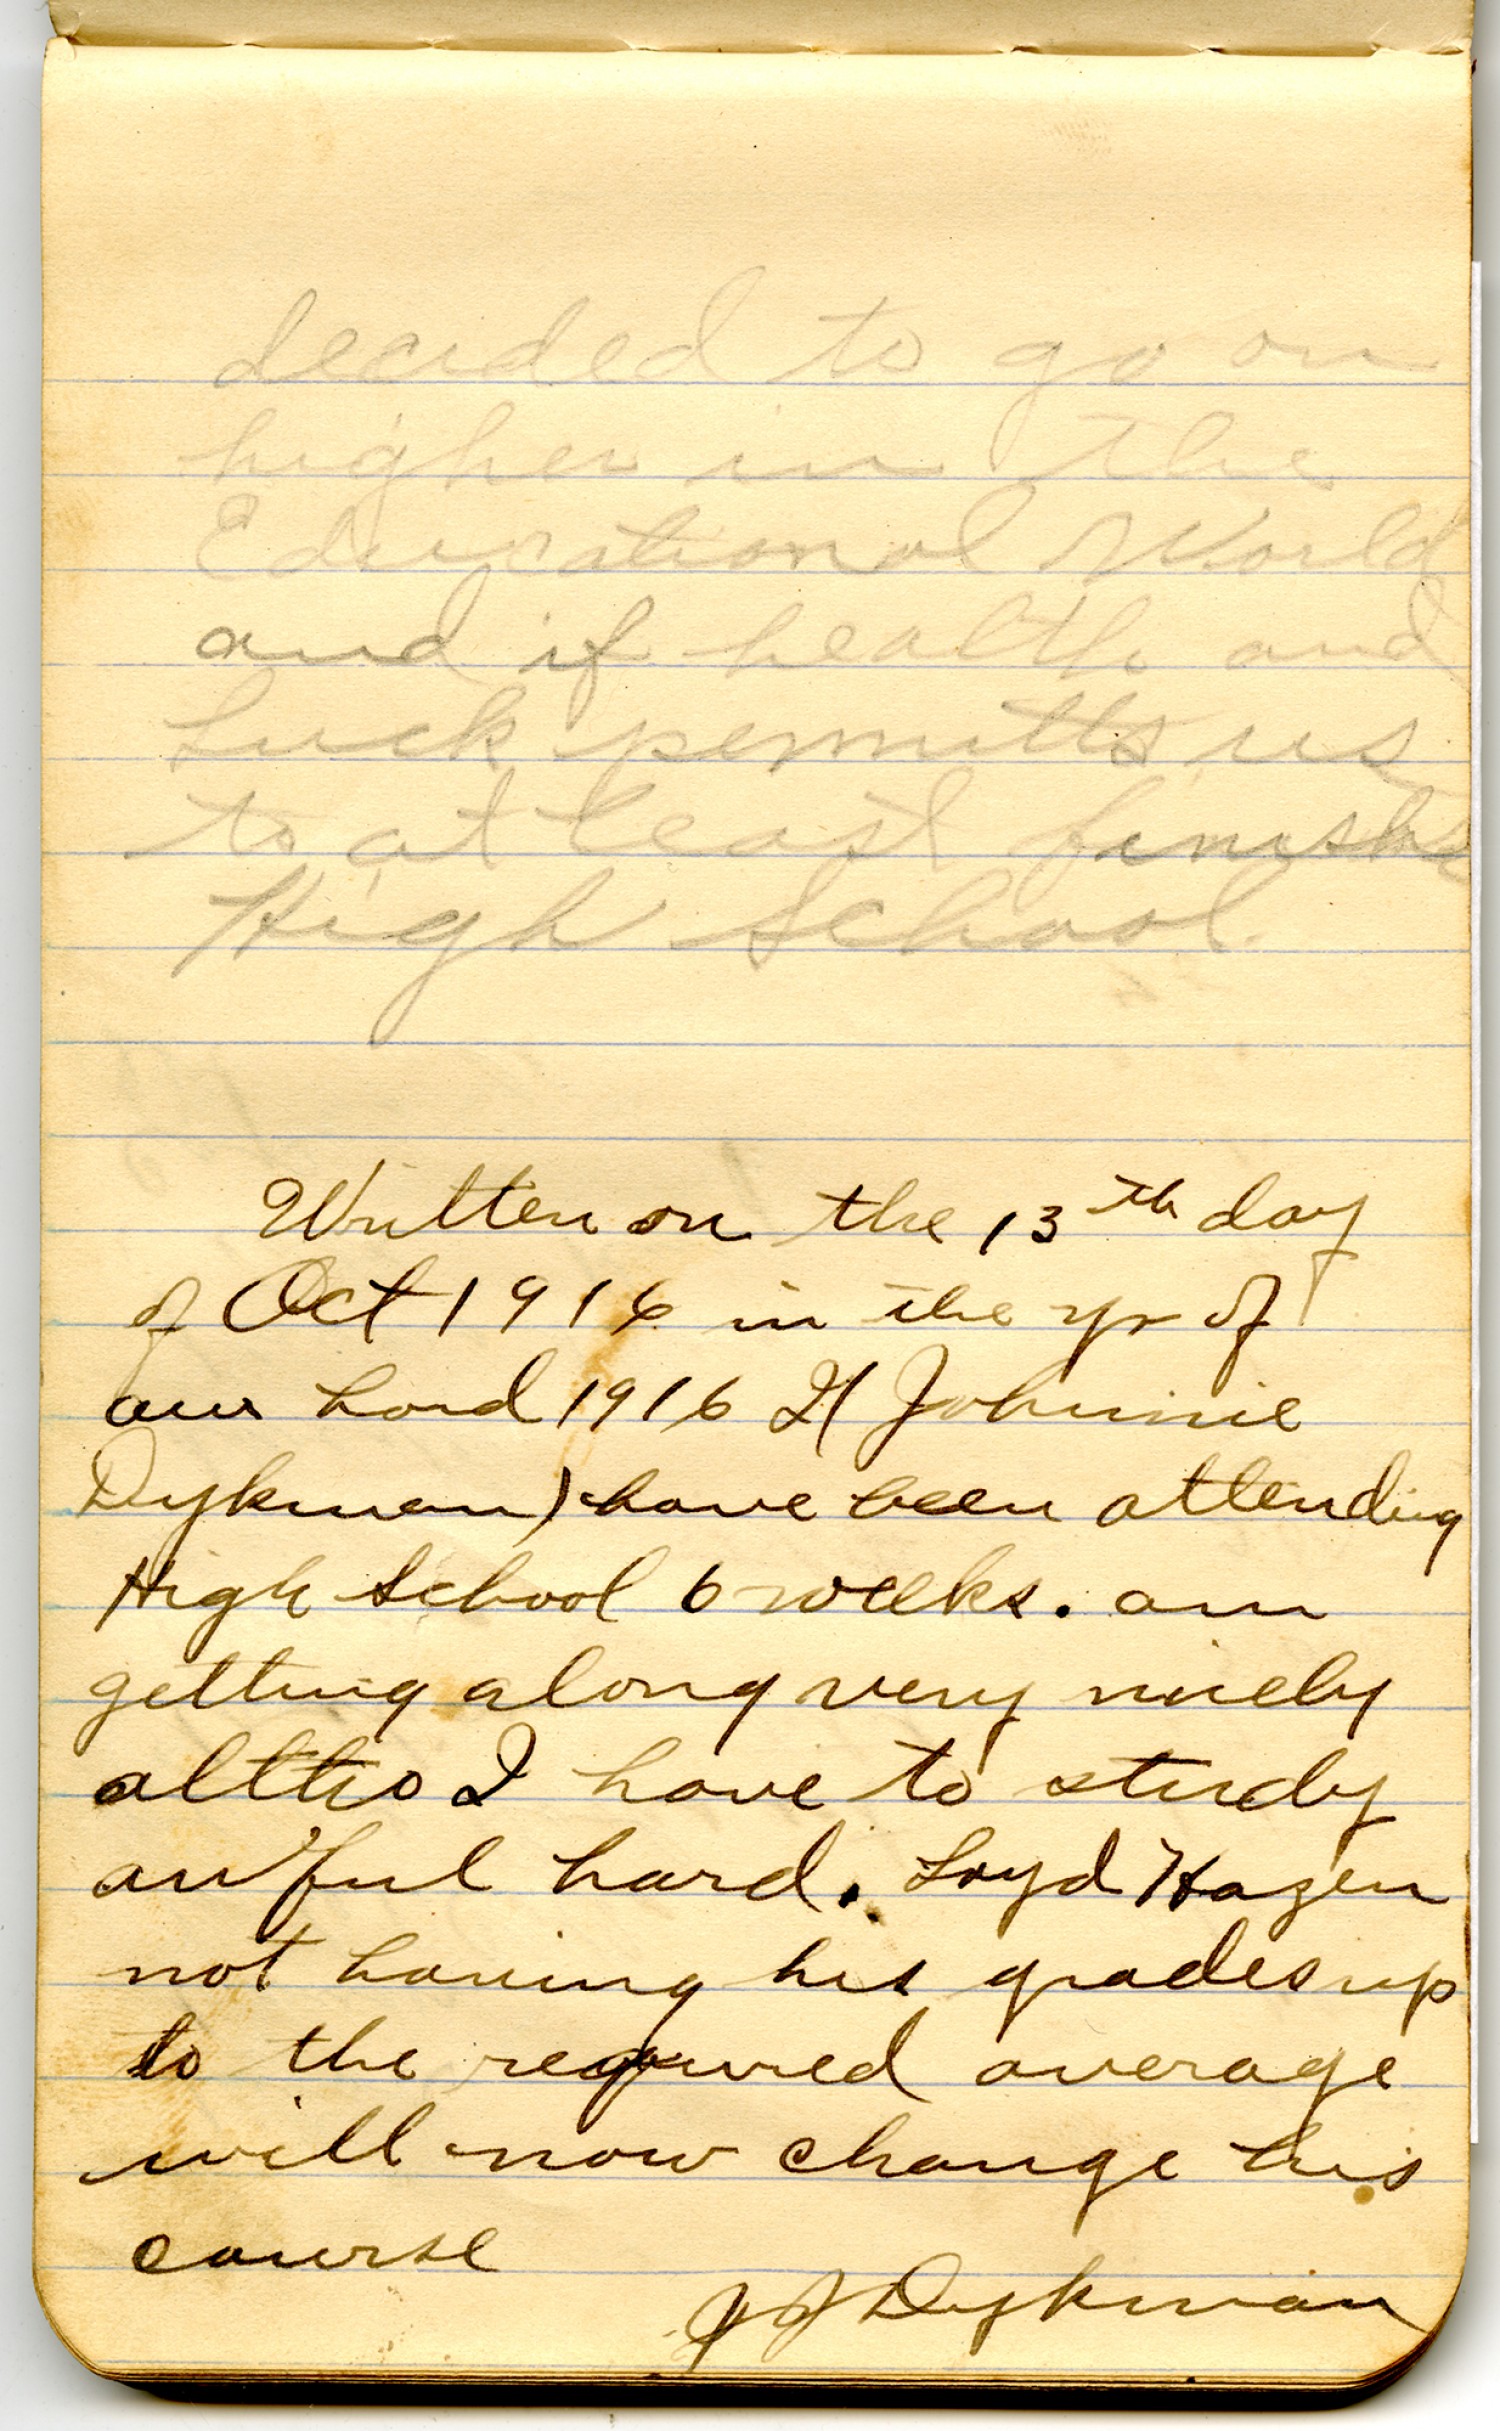 decided to go on
higher in the
Educational World
and if health and
Luck permitts us
to at least finish
High School
Written on the 13th day
of Oct 1916 in the yr of
our Lord 1916 I (Johnnie
Dykman) have been attending
High School 6 weeks. am
getting along very nicely
altho I have to study
awful hard. Loyd Hazen
not having his grades up
to the required average
will now change his
course
J J Dykman